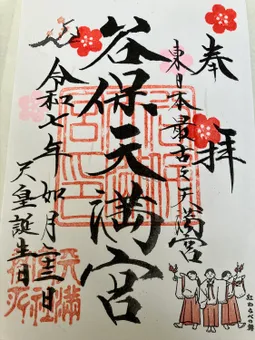 奉拝
東日本最古之天満宮
谷保天満宮
令和七年如月二十三日
天皇誕生日